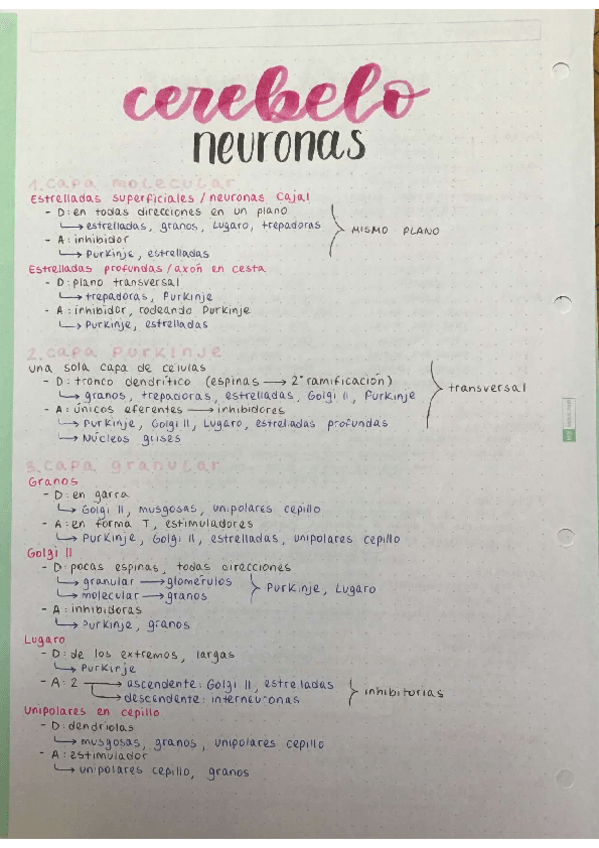 cerebelo
neuronas
1. capa molecular
Estrelladas superficiales / neuronas Cajal
- D: en todas direcciones en un plano
↳ estrelladas, granos, Lugaro, trepadoras
- A: inhibidor
↳ Purkinje, estrelladas
MISMO PLANO
Estrelladas profundas / axón en cesta
- D: plano transversal
↳ trepadoras, Purkinje
- A: inhibidor, rodeando Purkinje
↳ Purkinje, estrelladas
2. capa Purkinje
una sola capa de células
- D: tronco dendrítico (espinas → 2ª ramificación)
↳ granos, trepadoras, estrelladas, Golgi II, Purkinje
- A: únicos eferentes → inhibidores
↳ Purkinje, Golgi II, Lugaro, estrelladas profundas
↳ Núcleos grises
transversal
3. capa granular
Granos
- D: en garra
↳ Golgi II, musgosas, unipolares cepillo
- A: en forma T, estimuladores
↳ Purkinje, Golgi II, estrelladas, unipolares cepillo
Golgi II
- D: pocas espinas, todas direcciones
↳ granular → glomérulos
↳ molecular → granos
Purkinje, Lugaro
- A: inhibidoras
↳ Purkinje, granos
Lugaro
- D: de los extremos, largas
↳ Purkinje
- A: 2 → ascendente: Golgi II, estrelladas
↳ descendente: interneuronas
inhibitorias
Unipolares en cepillo
- D: dendriolas
↳ musgosas, granos, unipolares cepillo
- A: estimulador
↳ unipolares cepillo, granos